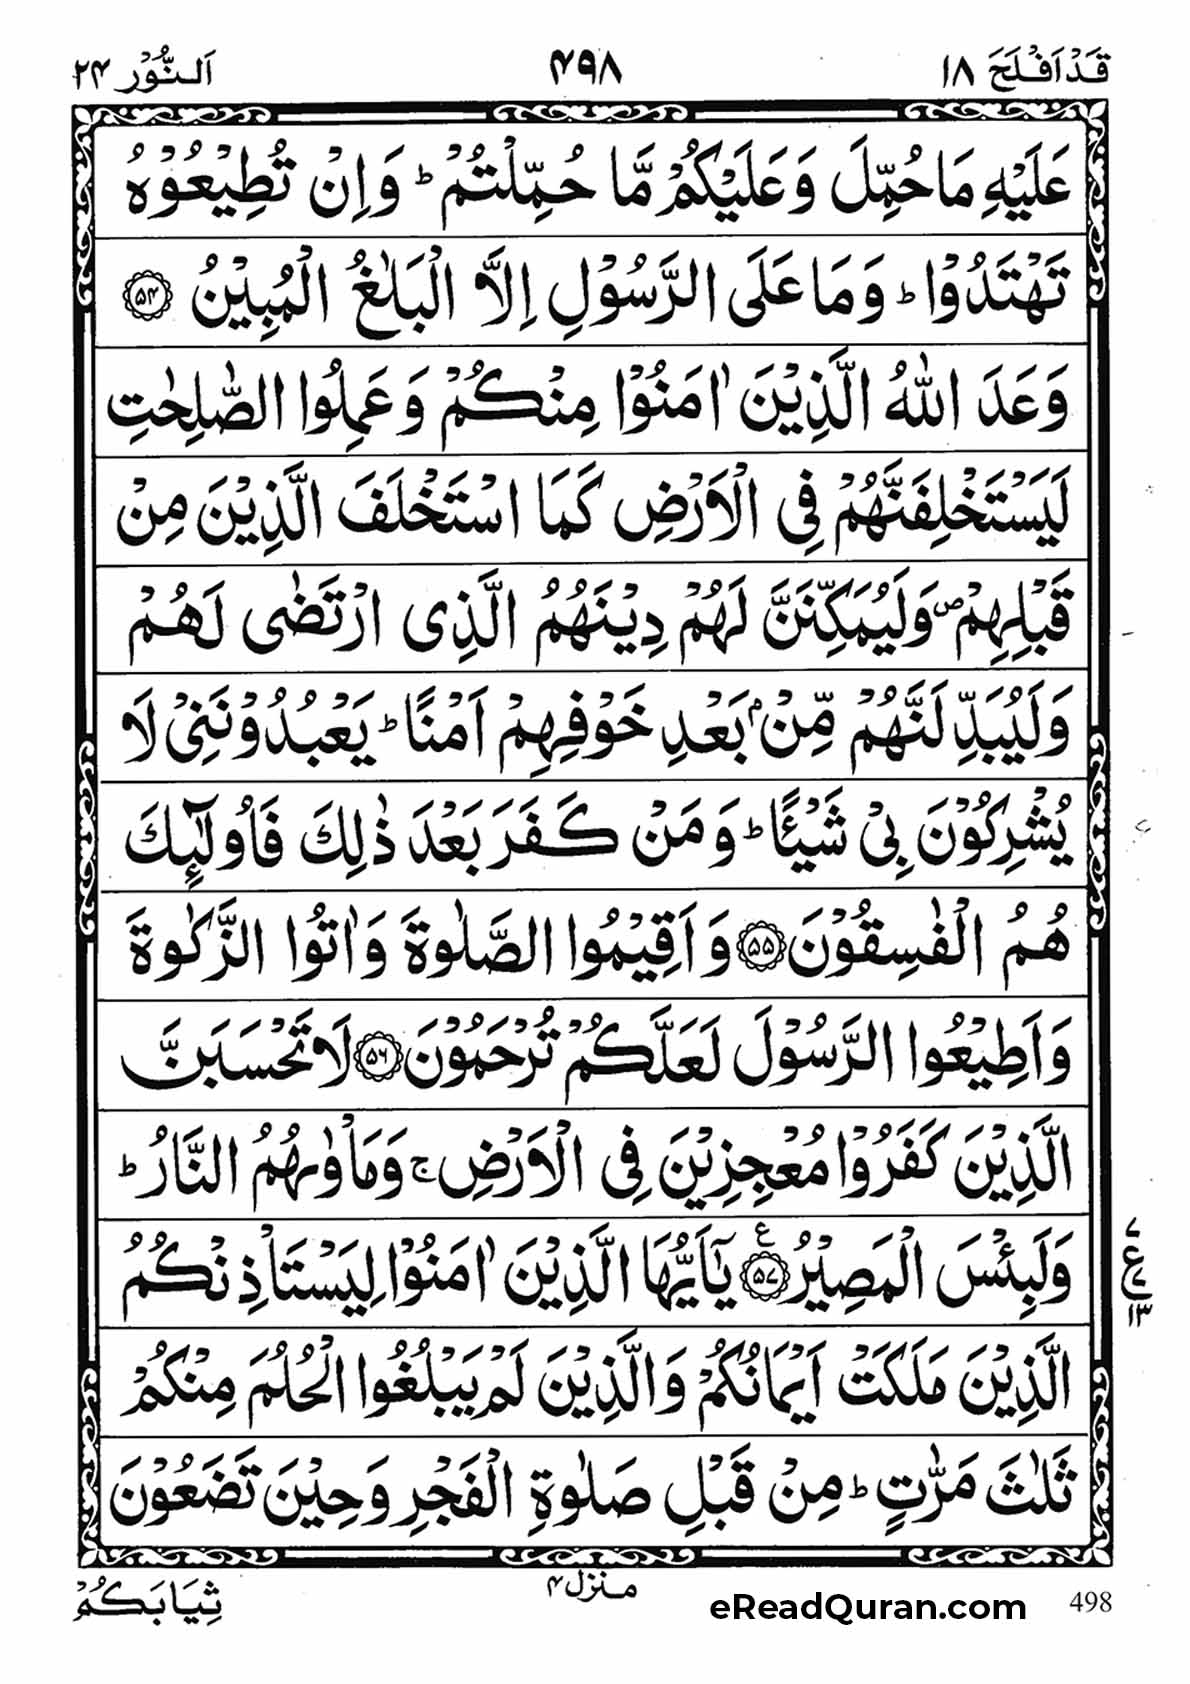 قَدْ اَفْلَحَ ١٨ ۴۹۸ اَلنُّوْر ٢۴
عَلَيْهِ مَا حُمِّلَ وَعَلَيْكُمْ مَّا حُمِّلْتُمْ ؕ وَاِنْ تُطِيْعُوْهُ
تَهْتَدُوْا ؕ وَمَا عَلَى الرَّسُوْلِ اِلَّا الْبَلٰغُ الْمُبِيْنُ ۵۴
وَعَدَ اللّٰهُ الَّذِيْنَ اٰمَنُوْا مِنْكُمْ وَعَمِلُوا الصّٰلِحٰتِ
لَيَسْتَخْلِفَنَّهُمْ فِي الْاَرْضِ كَمَا اسْتَخْلَفَ الَّذِيْنَ مِنْ
قَبْلِهِمْ ۪ وَلَيُمَكِّنَنَّ لَهُمْ دِيْنَهُمُ الَّذِى ارْتَضٰى لَهُمْ
وَلَيُبَدِّلَنَّهُمْ مِّنْۢ بَعْدِ خَوْفِهِمْ اَمْنًا ؕ يَعْبُدُوْنَنِيْ لَا
يُشْرِكُوْنَ بِيْ شَيْـًٔا ؕ وَمَنْ كَفَرَ بَعْدَ ذٰلِكَ فَاُولٰٓئِكَ
هُمُ الْفٰسِقُوْنَ ۵۵ وَاَقِيْمُوا الصَّلٰوةَ وَاٰتُوا الزَّكٰوةَ
وَاَطِيْعُوا الرَّسُوْلَ لَعَلَّكُمْ تُرْحَمُوْنَ ۵۶ لَا تَحْسَبَنَّ
الَّذِيْنَ كَفَرُوْا مُعْجِزِيْنَ فِي الْاَرْضِ ۚ وَمَاْوٰىهُمُ النَّارُ ؕ
وَلَبِئْسَ الْمَصِيْرُ ۵۷ ع يٰۤاَيُّهَا الَّذِيْنَ اٰمَنُوْا لِيَسْتَاْذِنْكُمُ
٧ ع ٧ ١٣
الَّذِيْنَ مَلَكَتْ اَيْمَانُكُمْ وَالَّذِيْنَ لَمْ يَبْلُغُوا الْحُلُمَ مِنْكُمْ
ثَلٰثَ مَرّٰتٍ ؕ مِنْ قَبْلِ صَلٰوةِ الْفَجْرِ وَحِيْنَ تَضَعُوْنَ
ثِيَابَكُمْ
منزل ۴
eReadQuran.com 498